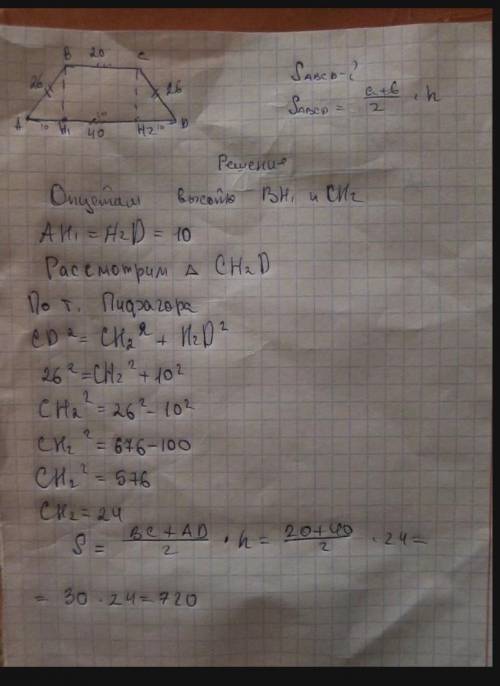 B 20 C
26 26
A 10 H1 40 H2 10 D
SABCD-?
SABCD = a+b/2 · h
Решение
Опустим высоты BH1 и CH2
AH1 = H2D = 10
Рассмотрим Δ CH2D
По т. Пифагора
CD² = CH2² + H2D²
26² = CH2² + 10²
CH2² = 26² - 10²
CH2² = 676 - 100
CH2² = 576
CH2 = 24
S = BC + AD/2 · h = 20+40/2 · 24 =
= 30 · 24 = 720